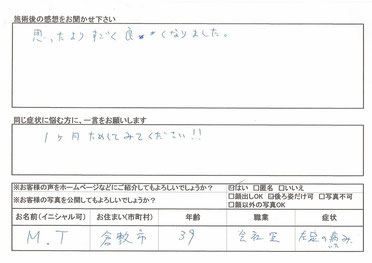 施術後の感想をお聞かせ下さい
思ったよりすごく良くなりました。
同じ症状に悩む方に、一言をお願いします
1ヶ月ためしてみてください!!
※お客様の声をホームページなどにご紹介してもよろしいでしょうか? ☑はい □匿名 □いいえ
※お客様の写真を公開してもよろしいでしょうか? □顔出しOK ☑後ろ姿だけ可 □写真不可
□顔以外の写真OK
お名前(イニシャル可) お住まい(市町村) 年齢 職業 症状
M.T 倉敷市 39 会社員 左足の痛み